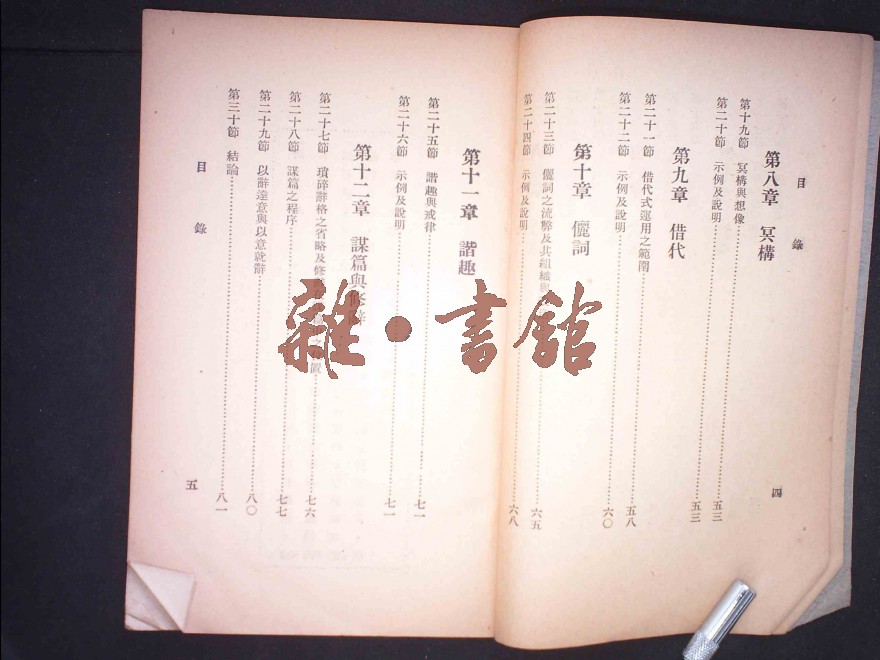 目錄
第八章 冥構
第十九節 冥構與想像……五三
第二十節 示例及說明……五三
第九章 借代
第二十一節 借代式運用之範圍……五八
第二十二節 示例及說明……六〇
第十章 儷詞
第二十三節 儷詞之流弊及其組織……六五
第二十四節 示例及說明……六八
四
第十一章 諧趣
第二十五節 諧趣與戒律……七一
第二十六節 示例及說明……七一
第十二章 謀篇與修辭
第二十七節 瑣碎辭格之省略及修辭……七六
第二十八節 謀篇之程序……七七
第二十九節 以辭達意與以意就辭……八〇
第三十節 結論……八一
目錄
五
雜·書館